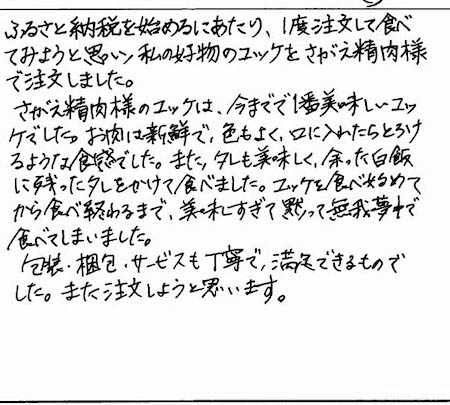 ふるさと納税を始めるにあたり、1度注文して食べ
てみようと思い、私の好物のユッケをさがえ精肉様
で注文しました。
さがえ精肉様のユッケは、今までで1番美味しいユッ
ケでした。お肉は新鮮で、色もよく、口に入れたらとろけ
るような食感でした。また、タレも美味しく、余った白飯
に残ったタレをかけて食べました。ユッケを食べ始めて
から食べ終わるまで、美味しすぎて黙って無我夢中で
食べてしまいました。
包装・梱包・サービスも丁寧で、満足できるもので
した。また注文しようと思います。